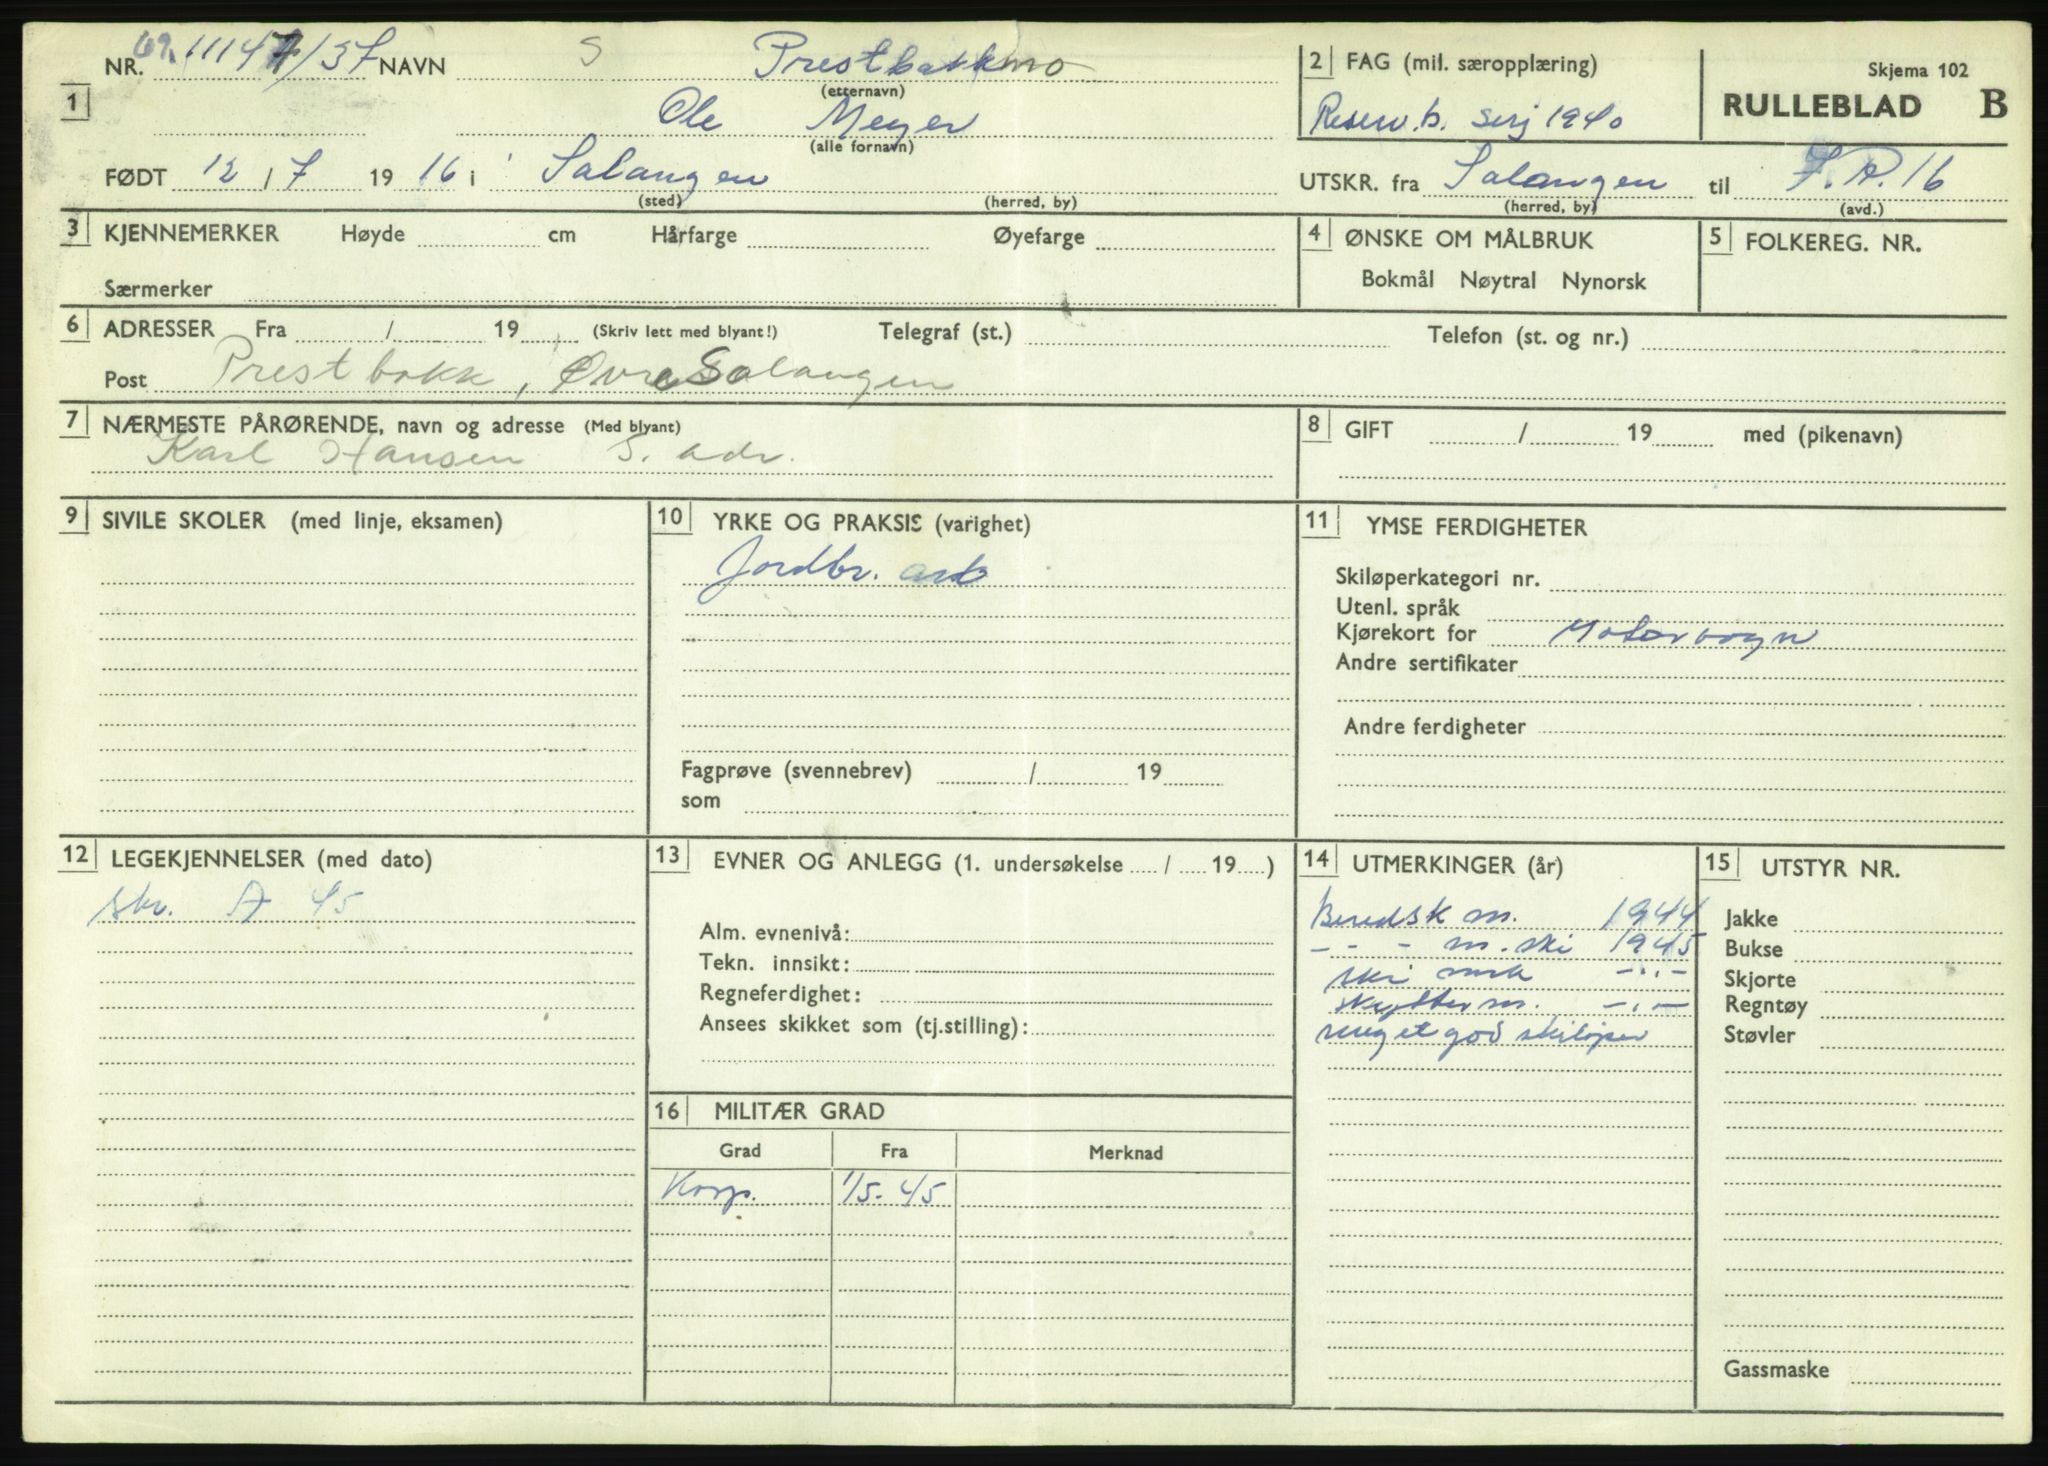 NR. 69. 11147/37 NAVN S Prestbakkmo
(etternavn)
1 Ole Meyer
(alle fornavn)
FØDT 12 / 7 19 16 i Salangen
(sted) (herred, by)
2 FAG (mil. særopplæring)
Reserv.b. serj 1940
Skjema 102
RULLEBLAD B
UTSKR. fra Salangen til I.R. 16
(herred, by) (avd.)
3 KJENNEMERKER Høyde cm Hårfarge Øyefarge
Særmerker
4 ØNSKE OM MÅLBRUK
Bokmål Nøytral Nynorsk
5 FOLKEREG. NR.
6 ADRESSER Fra / 19 (Skriv lett med blyant!) Telegraf (st.) Telefon (st. og nr.)
Post Prestbakk, Øvre Salangen
7 NÆRMESTE PÅRØRENDE, navn og adresse (Med blyant)
Karl Hansen S. adr.
8 GIFT / 19 med (pikenavn)
9 SIVILE SKOLER (med linje, eksamen)
10 YRKE OG PRAKSIS (varighet)
Jordbr. arb
Fagprøve (svennebrev) / 19
som
11 YMSE FERDIGHETER
Skiløperkategori nr.
Utenl. språk
Kjørekort for Motorvogn
Andre sertifikater
Andre ferdigheter
12 LEGEKJENNELSER (med dato)
skr. A 45
13 EVNER OG ANLEGG (1. undersøkelse / 19 )
Alm. evnenivå:
Tekn. innsikt:
Regneferdighet:
Ansees skikket som (tj.stilling):
14 UTMERKINGER (år)
Beredsk m. 1944
- - - m. ski 1945
ski merk -..-
skytterm. -.-
meget god skiløper
15 UTSTYR NR.
Jakke
Bukse
Skjorte
Regntøy
Støvler
Gassmaske
16 MILITÆR GRAD
Grad Fra Merknad
Korp. 1/5-45